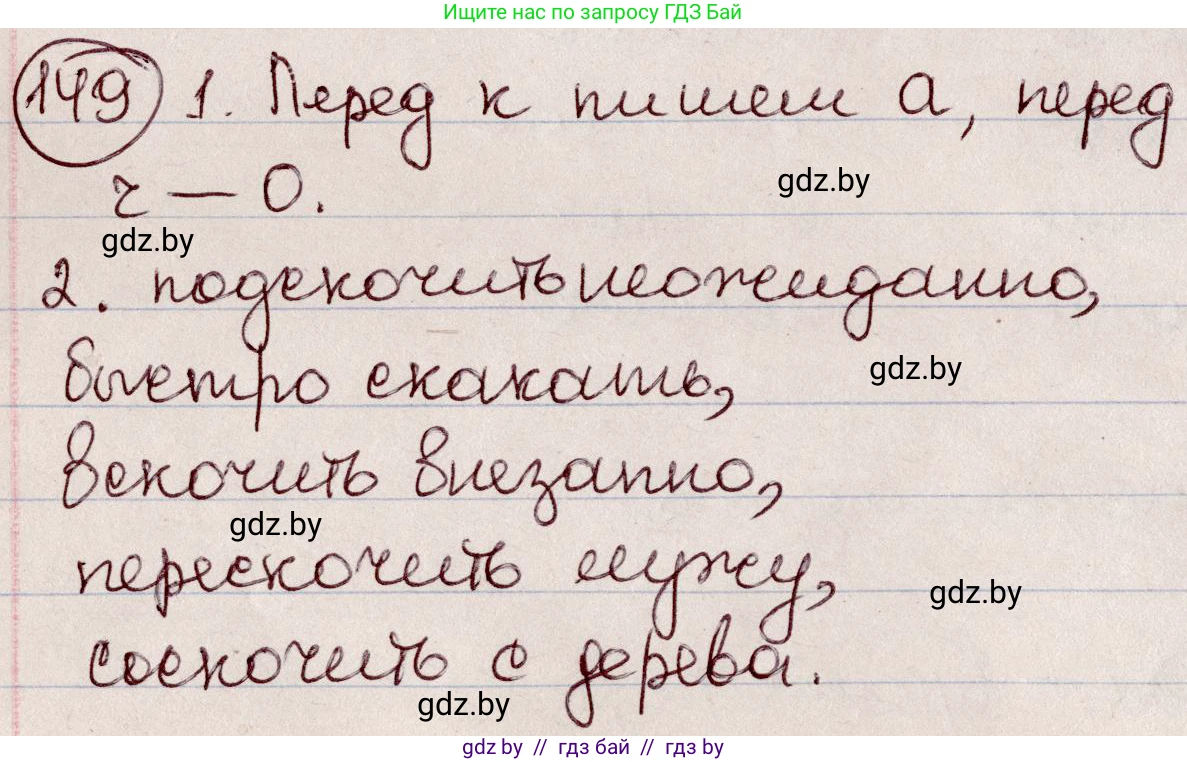 Ищите нас по запросу ГДЗ Бай
149 1. Перед к пишем а, перед
ч — о.
gdz.by
gdz.by
2. подскочить неожиданно,
быстро скакать,
gdz.by
вскочить внезапно,
gdz.by
перескочить лужу,
gdz.by
соскочить с дерева.
gdz.by
gdz by // гдз бай // гдз by